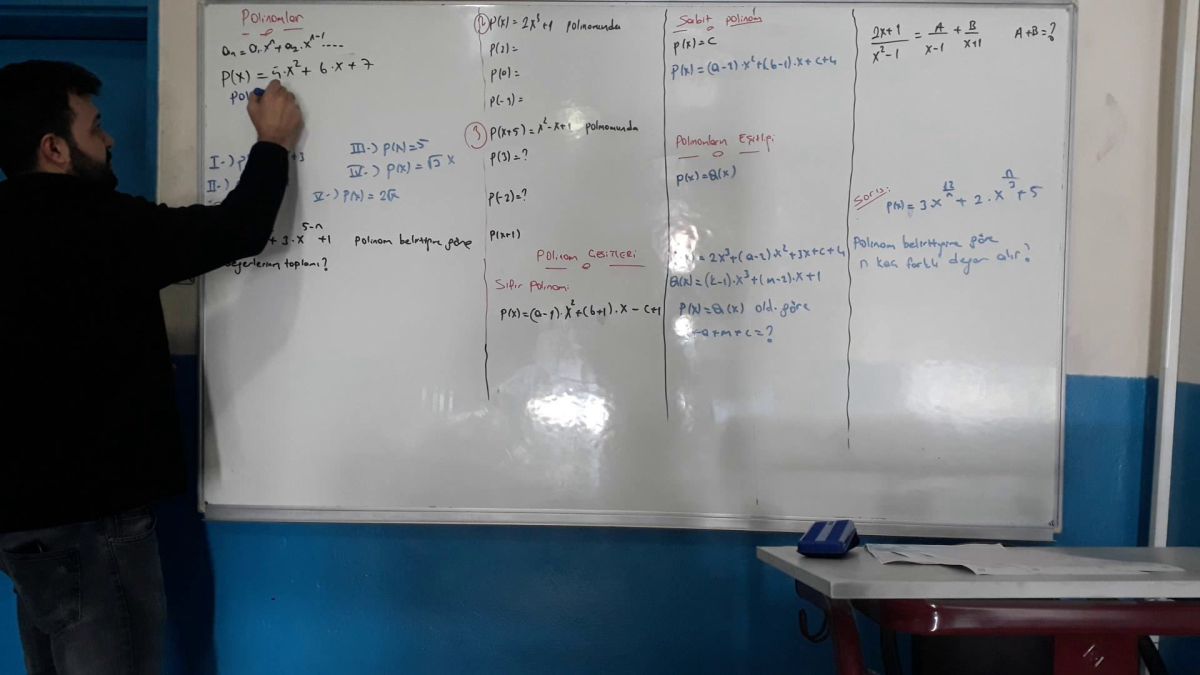 Polinomlar
aₙ = a₁.xⁿ + a₂.xⁿ⁻¹ ....
P(x) = 5.x² + 6.x + 7
Pol
I-) P +3
II-)
III-) P(x) = 5
IV-) P(x) = √3 x
V-) P(x) = 2√x
+ 3.x⁵⁻ⁿ + 1 polinom belirttiğine göre
değerlerinin toplamı?
2 P(x) = 2x³+1 polinomunda
P(2) =
P(0) =
P(-1) =
3 P(x+5) = x²-x+1 polinomunda
P(3) = ?
P(-2) = ?
P(x+1)
Polinom Çeşitleri
Sıfır Polinomu
P(x) = (a-1).x² + (b+1).x - c+1
Sabit polinom
P(x) = c
P(x) = (a-2).x² + (b-1).x + c+4
Polinomların Eşitliği
P(x) = Q(x)
= 2x³ + (a-2).x² + 3x + c + 4
Q(x) = (k-1).x³ + (m-2).x + 1
P(x) = Q(x) old. göre
a+m+c = ?
2x+1/x²-1 = A/x-1 + B/x+1 A+B = ?
Soru:
P(x) = 3.x^(12/n) + 2.x^(n/3) + 5
Polinom belirttiğine göre
n kaç farklı değer alır?